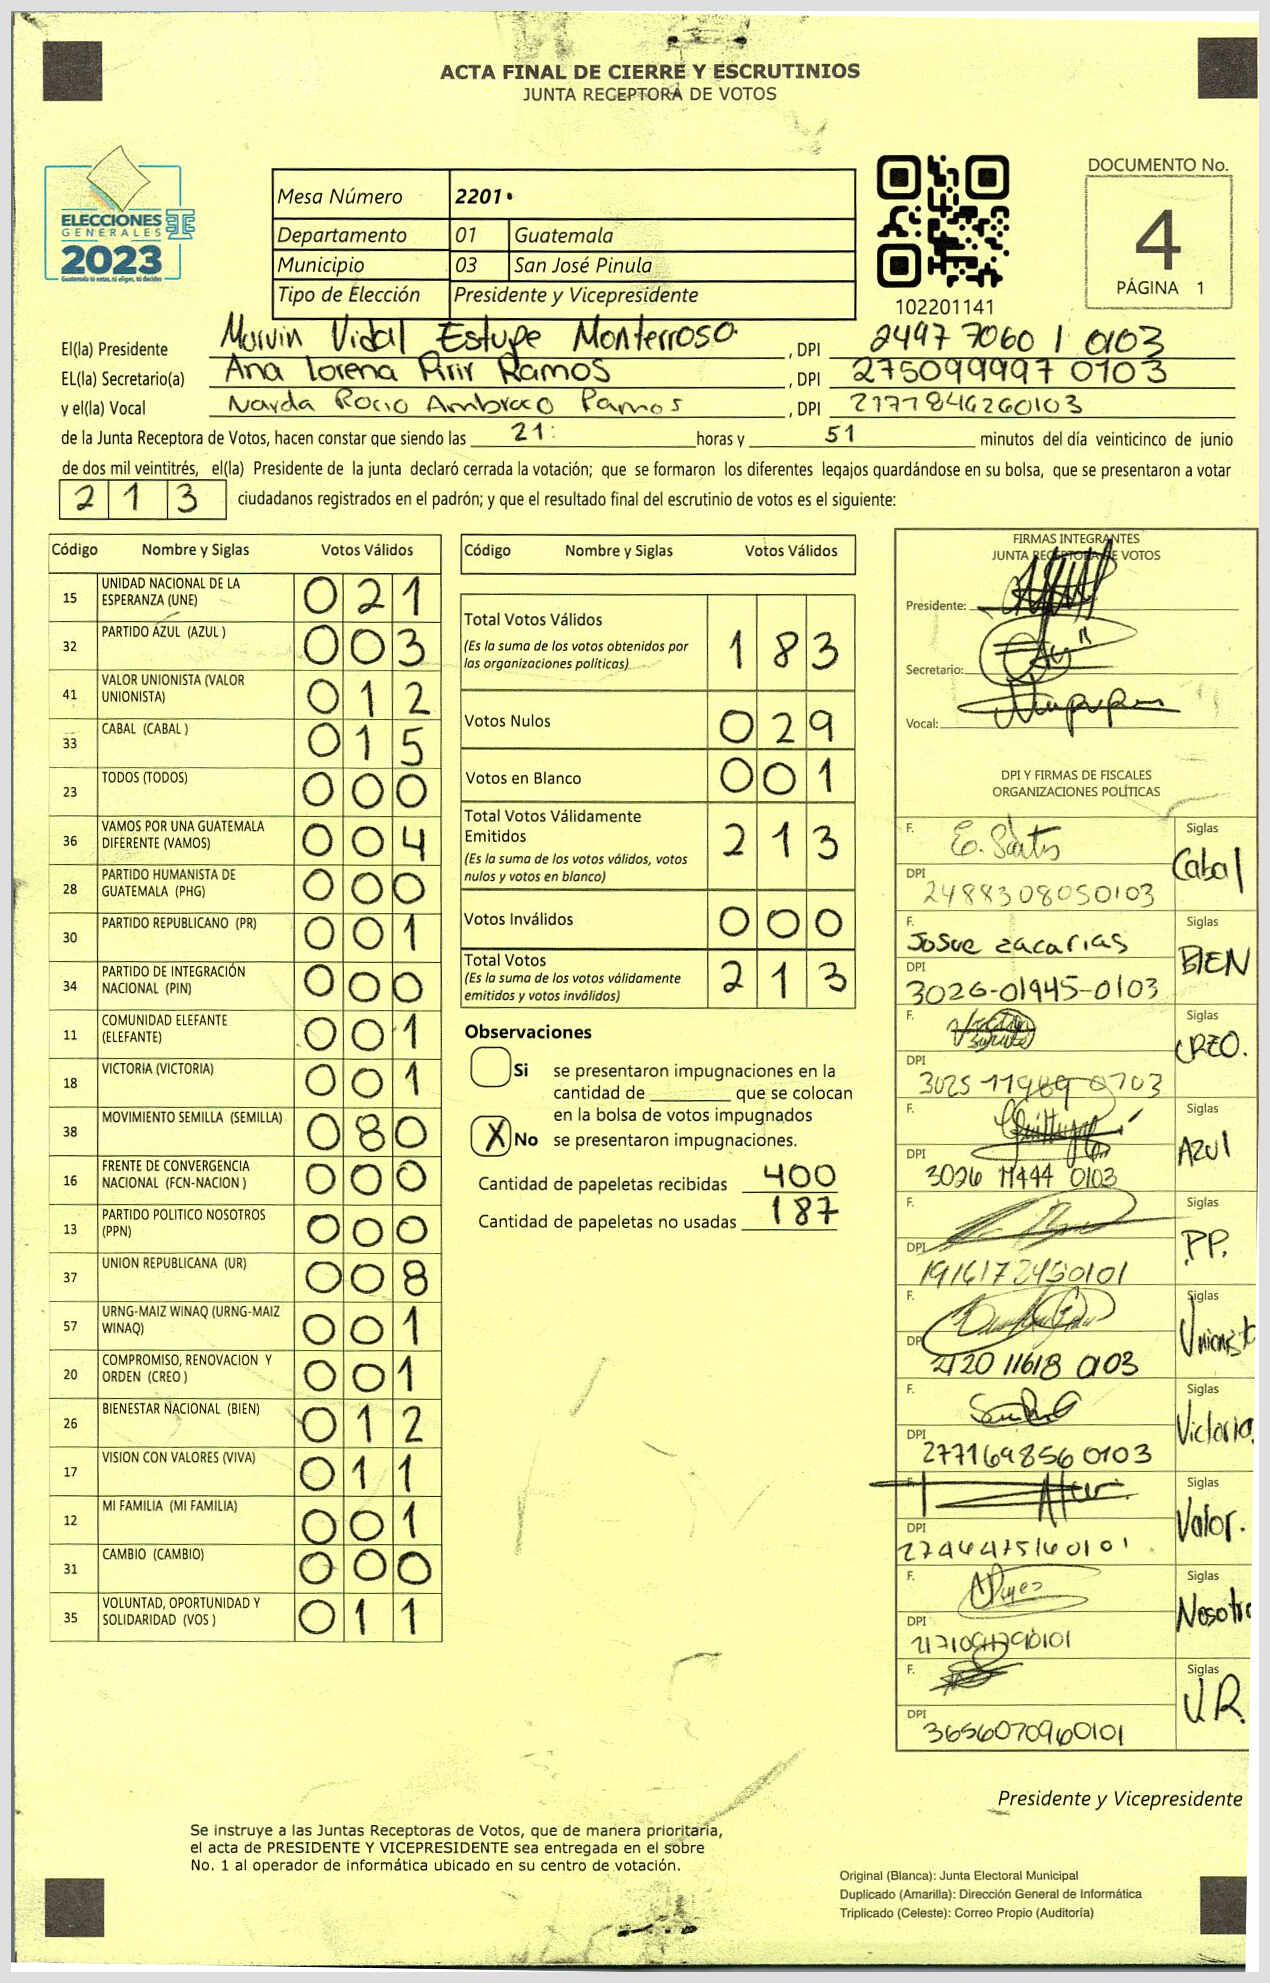 ACTA FINAL DE CIERRE Y ESCRUTINIOS
JUNTA RECEPTORA DE VOTOS
ELECCIONES
GENERALES
2023
Guatemala tú votas, tú eliges, tú decides
Mesa Número 2201
Departamento 01 Guatemala
Municipio 03 San José Pinula
Tipo de Elección Presidente y Vicepresidente
102201141
DOCUMENTO No.
4
PÁGINA 1
El(la) Presidente Marvin Vidal Estupe Monterroso, DPI 2497 7060 1 0103
EL(la) Secretario(a) Ana Lorena Pirir Ramos, DPI 275099997 0103
y el(la) Vocal Rocio Ramos, DPI 2177846260103
de la Junta Receptora de Votos, hacen constar que siendo las 21: horas y 51 minutos del día veinticinco de junio
de dos mil veintitrés, el(la) Presidente de la junta declaró cerrada la votación; que se formaron los diferentes legajos guardándose en su bolsa, que se presentaron a votar
213 ciudadanos registrados en el padrón; y que el resultado final del escrutinio de votos es el siguiente:
Código Nombre y Siglas Votos Válidos
15 UNIDAD NACIONAL DE LA ESPERANZA (UNE) 021
32 PARTIDO AZUL (AZUL ) 003
41 VALOR UNIONISTA (VALOR UNIONISTA) 012
33 CABAL (CABAL ) 015
23 TODOS (TODOS) 000
36 VAMOS POR UNA GUATEMALA DIFERENTE (VAMOS) 004
28 PARTIDO HUMANISTA DE GUATEMALA (PHG) 000
30 PARTIDO REPUBLICANO (PR) 001
34 PARTIDO DE INTEGRACIÓN NACIONAL (PIN) 000
11 COMUNIDAD ELEFANTE (ELEFANTE) 001
18 VICTORIA (VICTORIA) 001
38 MOVIMIENTO SEMILLA (SEMILLA) 080
16 FRENTE DE CONVERGENCIA NACIONAL (FCN-NACION ) 000
13 PARTIDO POLITICO NOSOTROS (PPN) 000
37 UNION REPUBLICANA (UR) 008
57 URNG-MAIZ WINAQ (URNG-MAIZ WINAQ) 001
20 COMPROMISO, RENOVACION Y ORDEN (CREO ) 001
26 BIENESTAR NACIONAL (BIEN) 012
17 VISION CON VALORES (VIVA) 011
12 MI FAMILIA (MI FAMILIA) 001
31 CAMBIO (CAMBIO) 000
35 VOLUNTAD, OPORTUNIDAD Y SOLIDARIDAD (VOS ) 011
Código Nombre y Siglas Votos Válidos
Total Votos Válidos 183
(Es la suma de los votos obtenidos por
las organizaciones políticas)
Votos Nulos 029
Votos en Blanco 001
Total Votos Válidamente
Emitidos 213
(Es la suma de los votos válidos, votos
nulos y votos en blanco)
Votos Inválidos 000
Total Votos 213
(Es la suma de los votos válidamente
emitidos y votos inválidos)
Observaciones
Si se presentaron impugnaciones en la
cantidad de ________ que se colocan
en la bolsa de votos impugnados
X No se presentaron impugnaciones.
Cantidad de papeletas recibidas 400
Cantidad de papeletas no usadas 187
FIRMAS INTEGRANTES
JUNTA RECEPTORA DE VOTOS
Presidente:
Secretario:
Vocal:
DPI Y FIRMAS DE FISCALES
ORGANIZACIONES POLÍTICAS
F. Siglas Cabal
DPI 2488308050103
F. Josue zacarias Siglas BIEN
DPI 3026-01945-0103
F. Siglas CREO.
DPI
F. Siglas AZUL
DPI 3026 11444 0103
F. Siglas P.P.
DPI
F. Siglas Unionista
DPI 2120 11618 0103
F. Siglas Victoria
DPI 277169856 0103
F. Siglas Valor.
DPI
F. Siglas Nosotro
DPI
F. Siglas U.R.
DPI 3656070960101
Presidente y Vicepresidente
Se instruye a las Juntas Receptoras de Votos, que de manera prioritaria,
el acta de PRESIDENTE Y VICEPRESIDENTE sea entregada en el sobre
No. 1 al operador de informática ubicado en su centro de votación.
Original (Blanca): Junta Electoral Municipal
Duplicado (Amarilla): Dirección General de Informática
Triplicado (Celeste): Correo Propio (Auditoría)